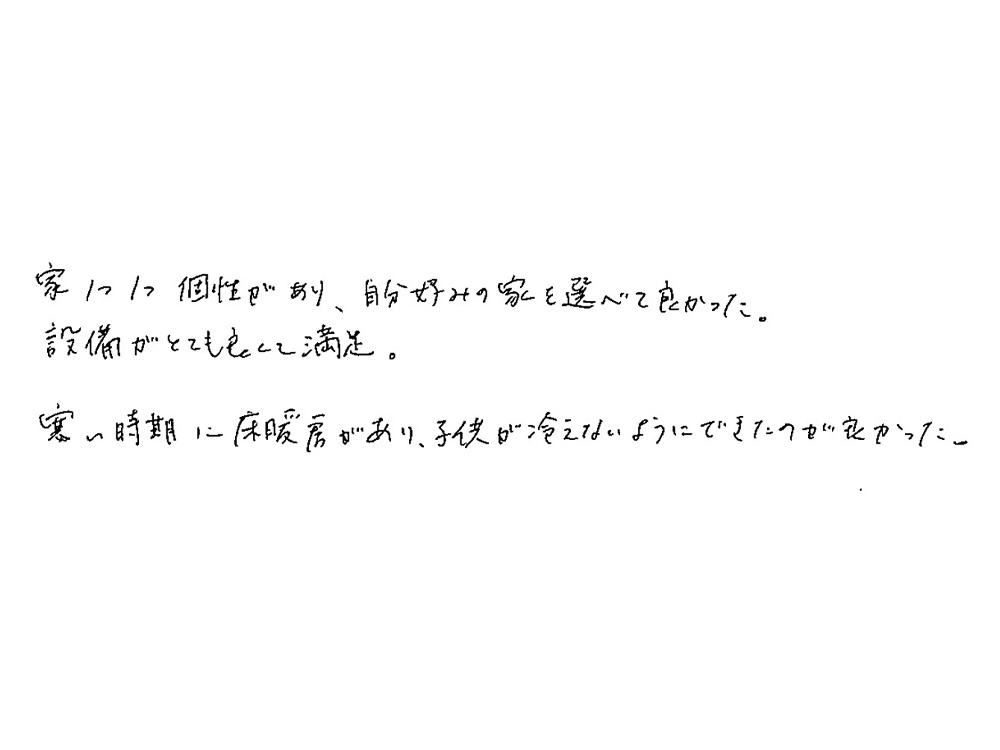 家1つ1つ個性があり、自分好みの家を選べて良かった。
設備がとても良くて満足。
寒い時期に床暖房があり、子供が冷えないようにできたのが良かった。